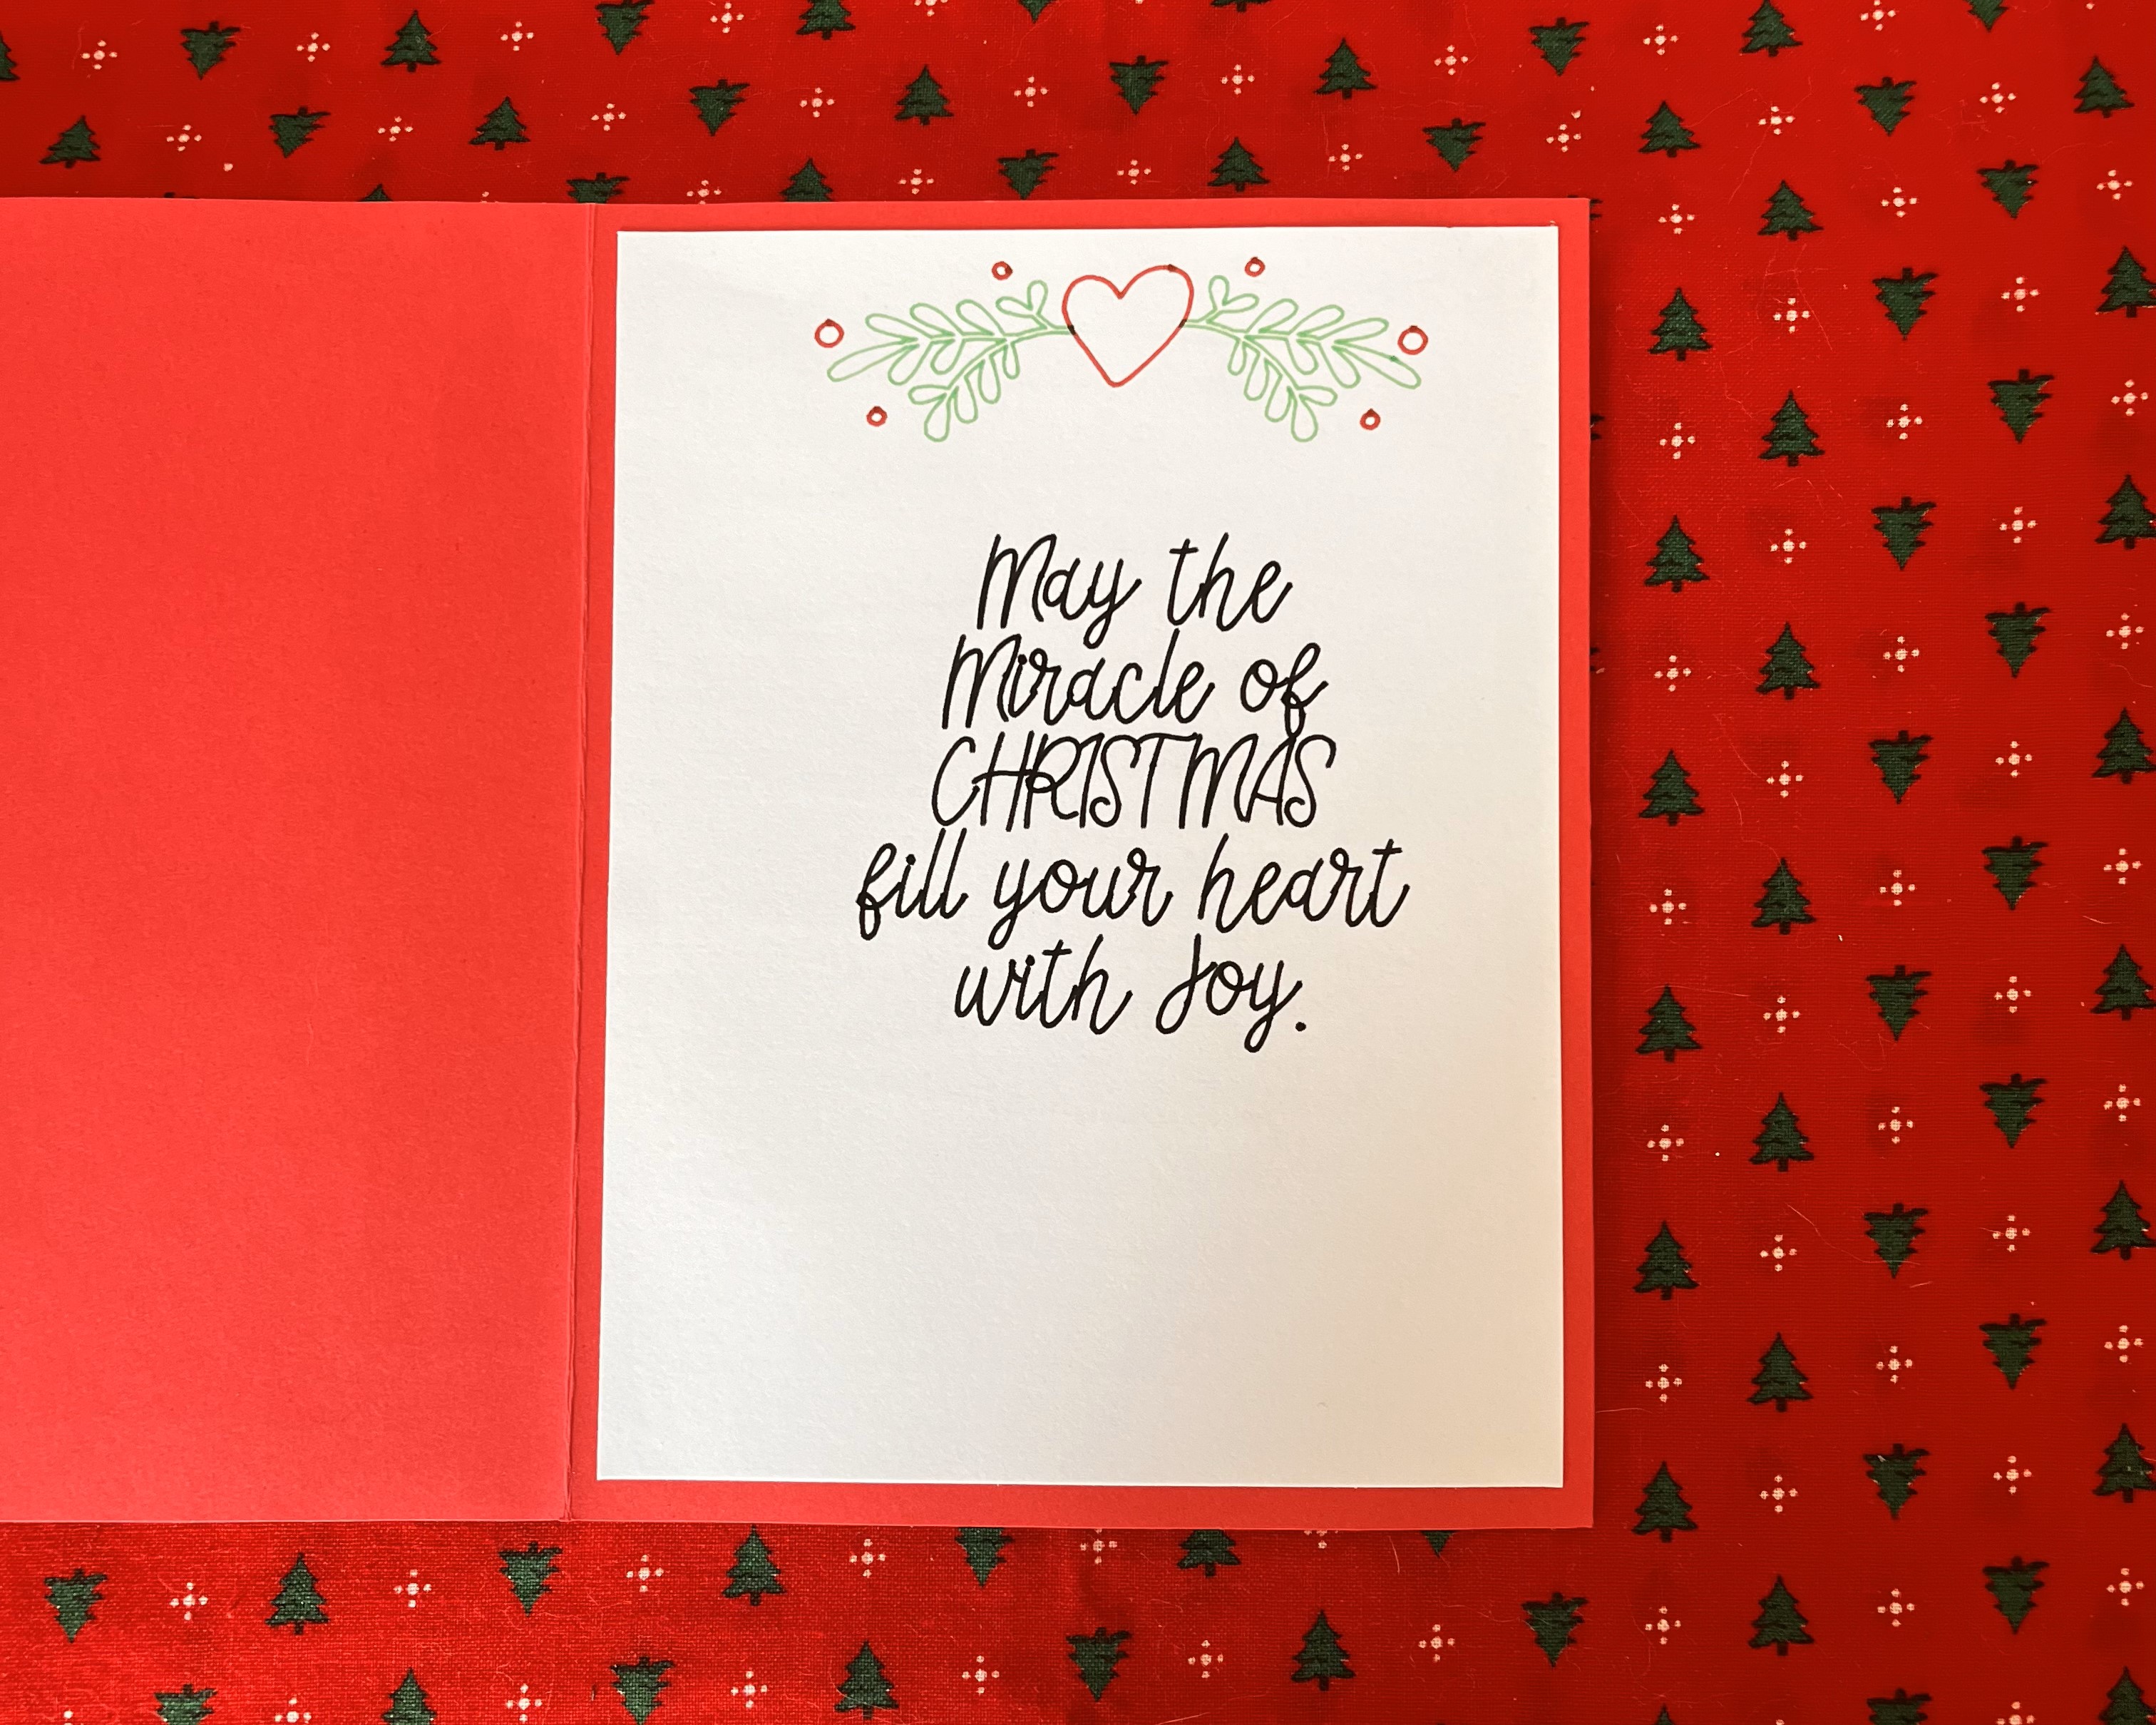 May the
Miracle of
CHRISTMAS
fill your heart
with Joy.